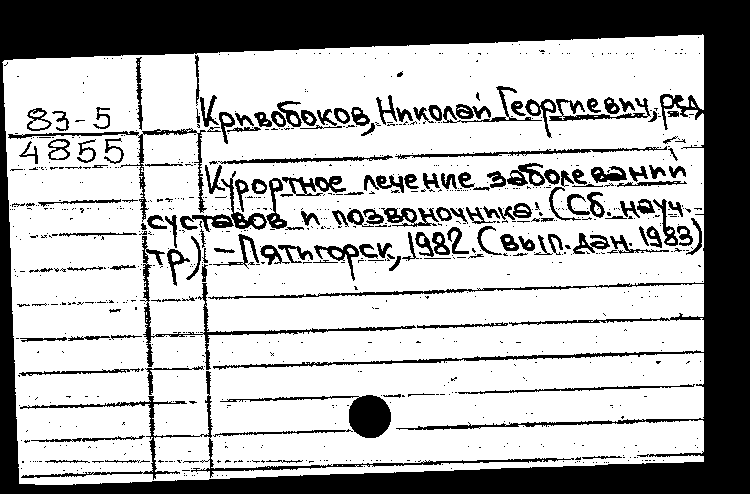 83-5 Кривобоков, Николай Георгиевич, ред.
4855
Курортное лечение заболеваний
суставов и позвоночника: (Сб. науч.
тр.) – Пятигорск, 1982. (вып. дан. 1983)